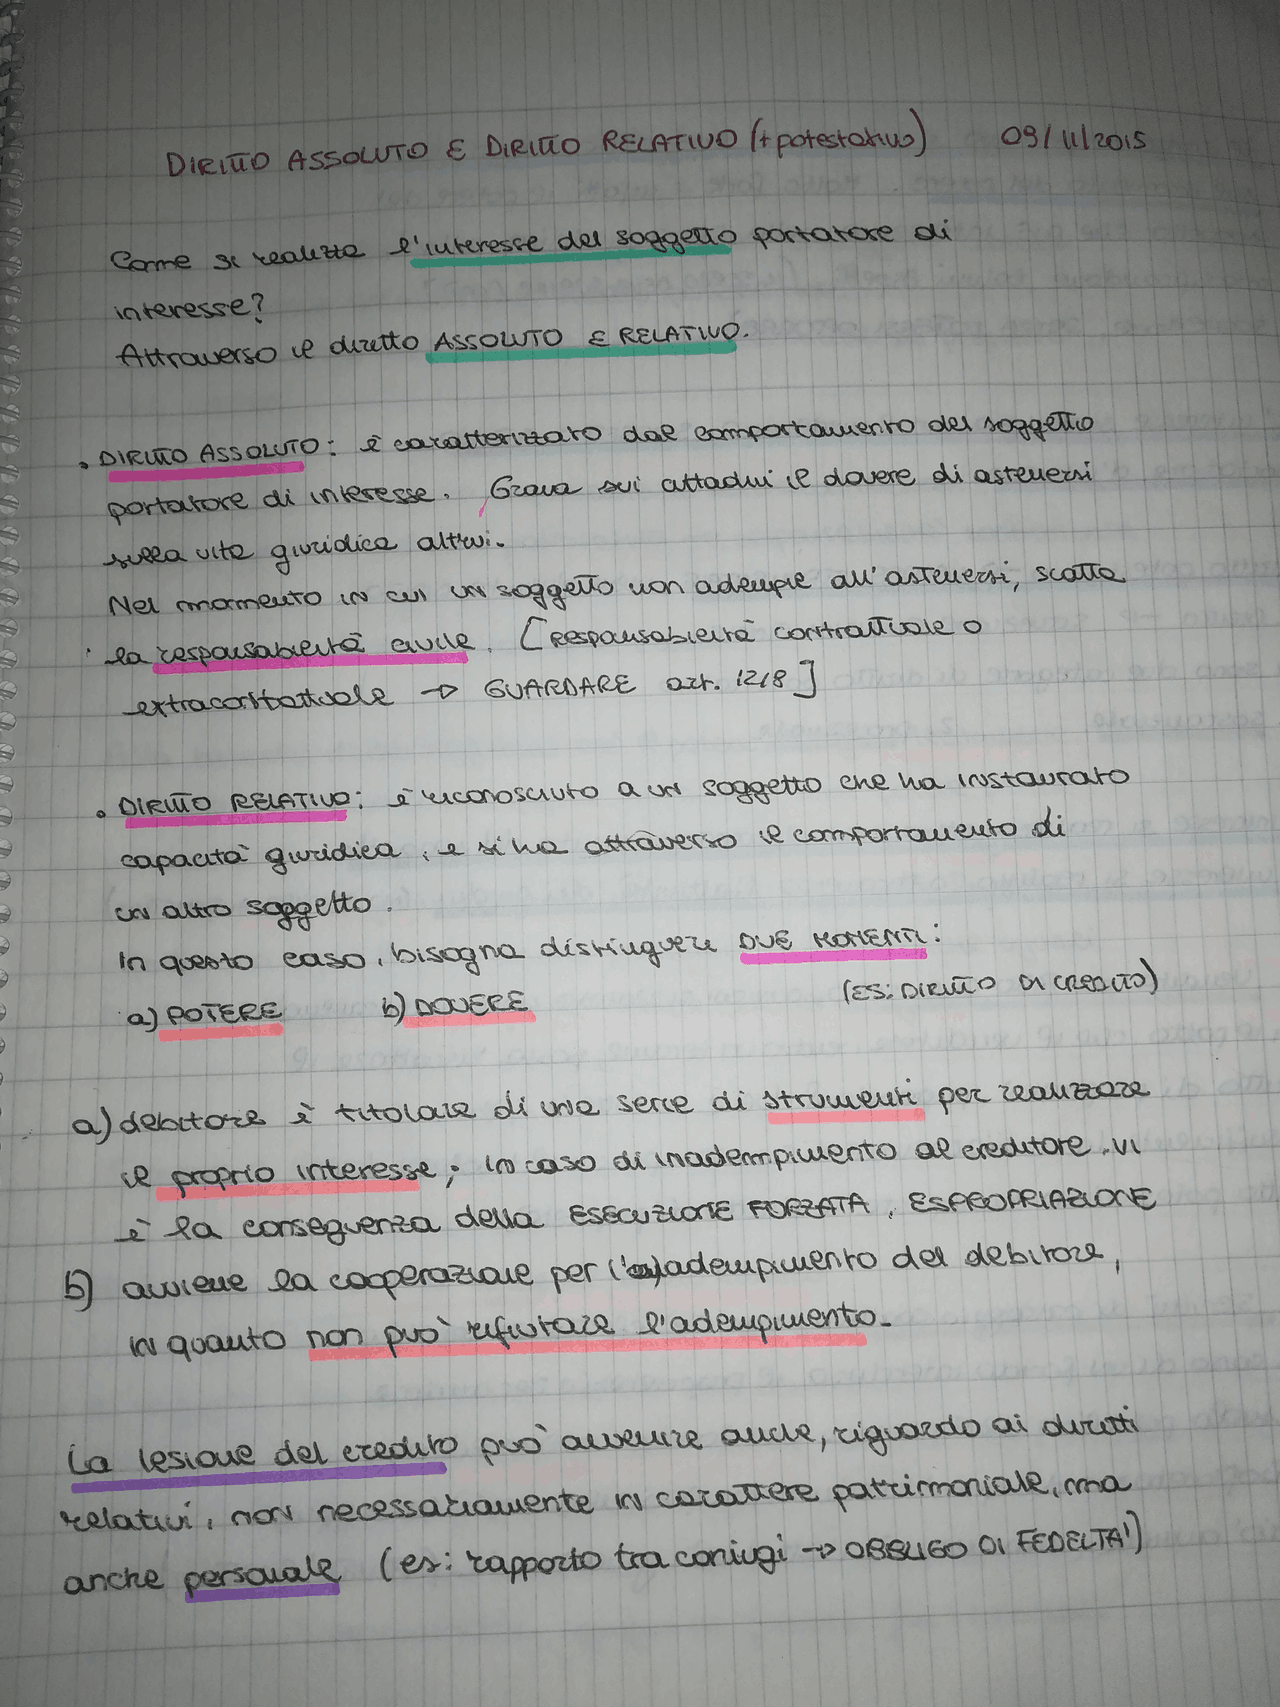 DIRITTO ASSOLUTO E DIRITTO RELATIVO (+ potestativo) 09/11/2015
Come si realizza l'interesse del soggetto portatore di
interesse?
Attraverso il diritto ASSOLUTO E RELATIVO.
• DIRITTO ASSOLUTO: è caratterizzato dal comportamento del soggetto
portatore di interesse. Grava sui cittadini il dovere di astenersi
sulla vita giuridica altrui.
Nel momento in cui un soggetto non adempie all'astenersi, scatta
la responsabilità civile. [responsabilità contrattuale o
extracontrattuale → GUARDARE art. 1218]
• DIRITTO RELATIVO: è riconosciuto a un soggetto che ha instaurato
capacità giuridica, e si ha attraverso il comportamento di
un altro soggetto.
In questo caso, bisogna distinguere DUE MOMENTI:
a) POTERE b) DOVERE (ES: DIRITTO DI CREDITO)
a) debitore è titolare di una serie di strumenti per realizzare
il proprio interesse; in caso di inadempimento al creditore, vi
è la conseguenza della ESECUZIONE FORZATA, ESPROPRIAZIONE
b) avviene la cooperazione per l'adempimento del debitore,
in quanto non può rifiutare l'adempimento.
La lesione del credito può avvenire anche, riguardo ai diritti
relativi, non necessariamente in carattere patrimoniale, ma
anche personale (es: rapporto tra coniugi → OBBLIGO DI FEDELTA')